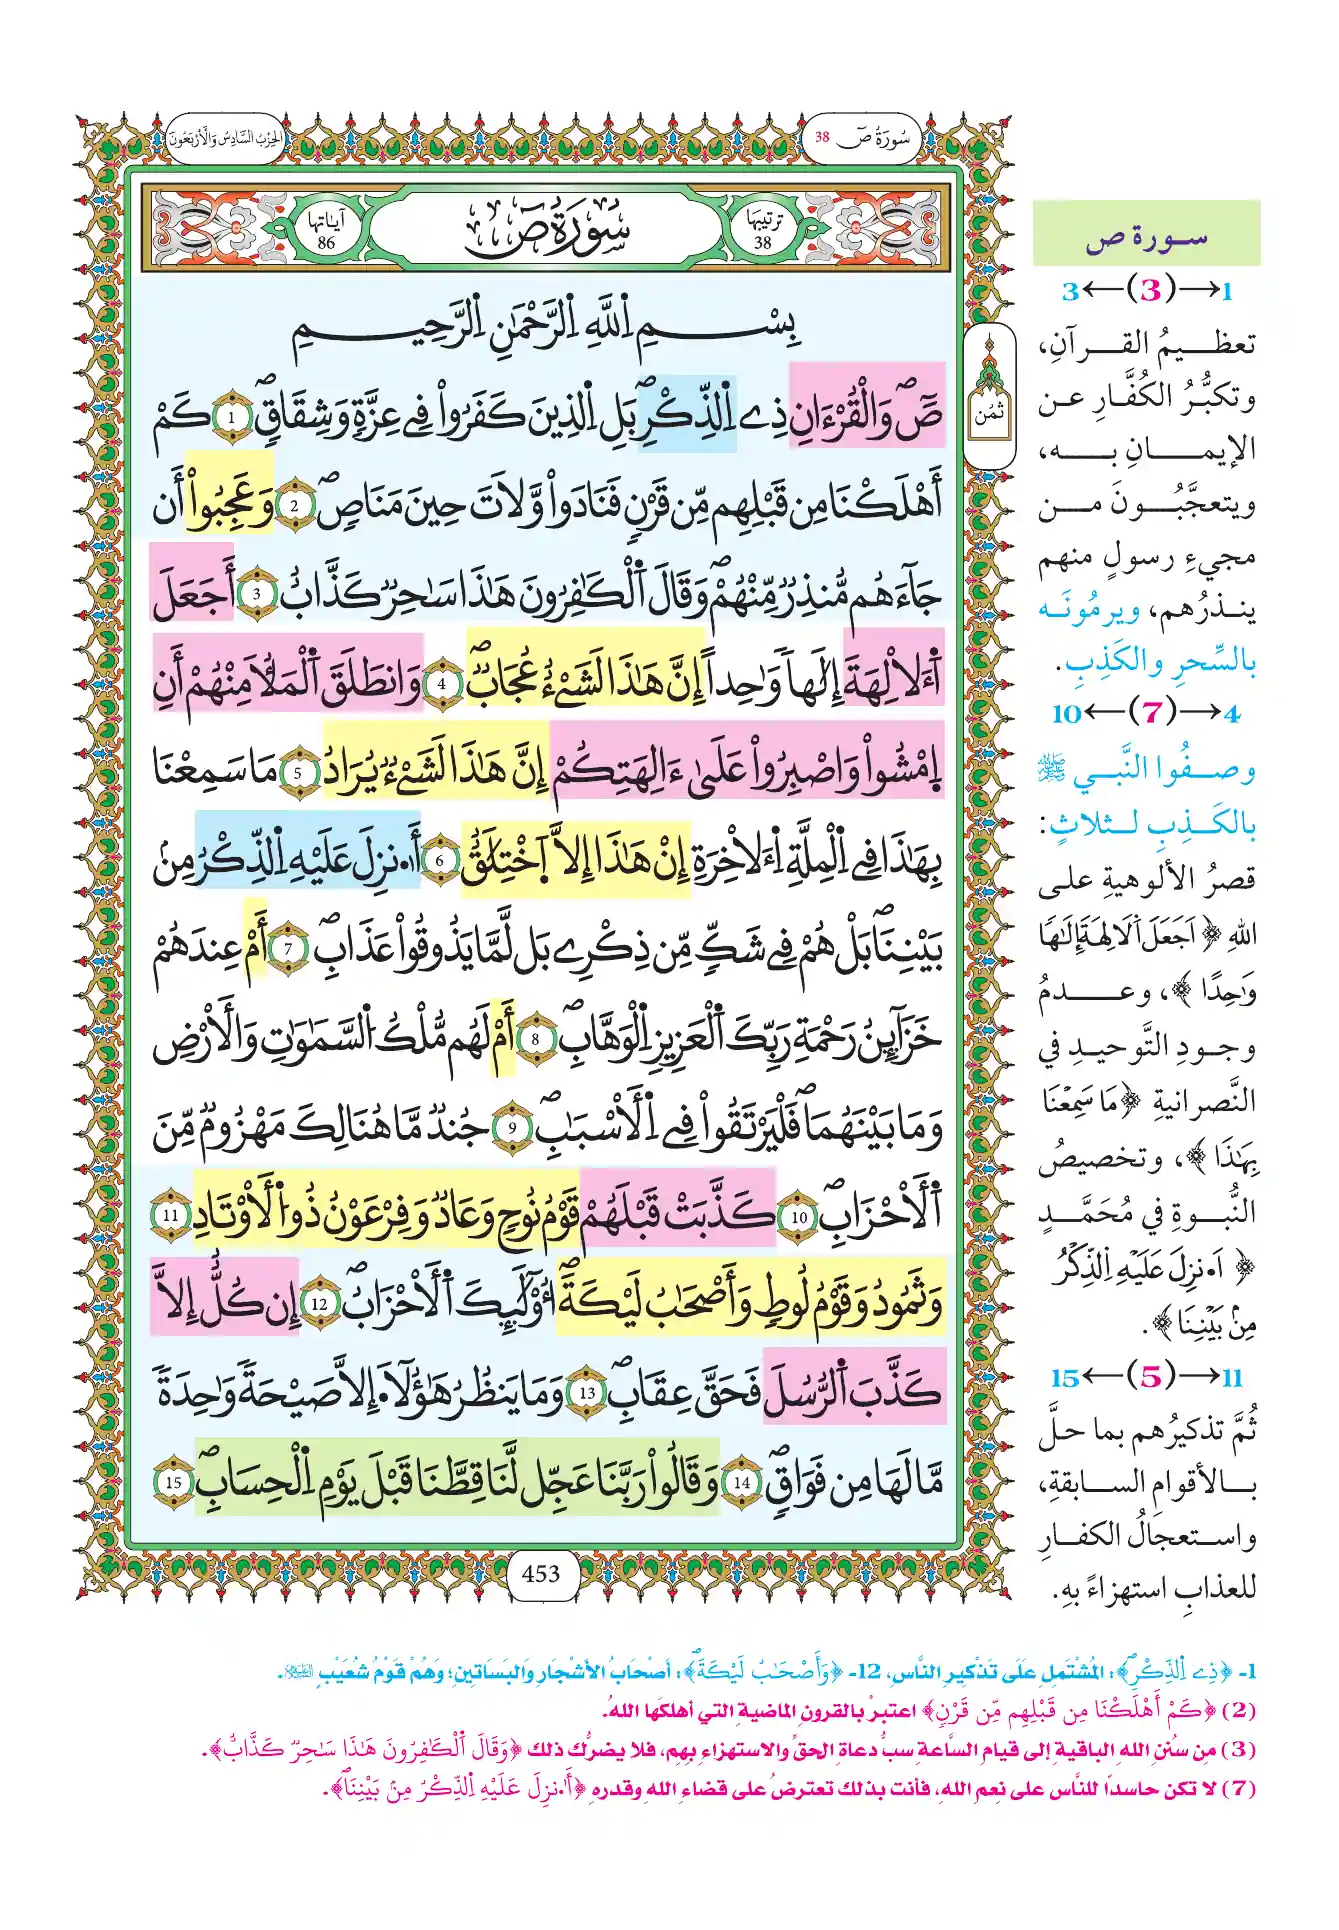 سُورَةُ صٓ 38
الحِزْبُ السَّادِسُ وَالأَرْبَعُونَ
ترتيبها 38
سُورَةُ صٓ
آياتها 86
بِسْمِ اِ۬للَّهِ اِ۬لرَّحْمَٰنِ اِ۬لرَّحِيمِ
صَٓۖ وَالْقُرْءَانِ ذِے اِ۬لذِّكْرِۖ بَلِ اِ۬لذِينَ كَفَرُواْ فِے عِزَّةٖ وَشِقَاقٖۖ 1 كَمْ
أَهْلَكْنَا مِن قَبْلِهِم مِّن قَرْنٖ فَنَادَواْ وَّلَاتَ حِينَ مَنَاصٖۖ 2 وَعَجِبُواْ أَن
جَآءَهُم مُّنذِرٞ مِّنْهُمْۖ وَقَالَ اَ۬لْكَٰفِرُونَ هَٰذَا سَٰحِرٞ كَذَّابٌ 3 أَجَعَلَ
اَ۬لَالِهَةَ إِلَٰهاٗ وَٰحِداًۖ إِنَّ هَٰذَا لَشَےْءٌ عُجَابٞۖ 4 وَانطَلَقَ اَ۬لْمَلَأُ مِنْهُمْ أَنِ
اِ۪مْشُواْ وَاصْبِرُواْ عَلَىٰ ءَالِهَتِكُمْ إِنَّ هَٰذَا لَشَےْءٞ يُرَادُ 5 مَا سَمِعْنَا
بِهَٰذَا فِے اِ۬لْمِلَّةِ اِ۬لَاخِرَةِ إِنْ هَٰذَا إِلَّا اَ۪خْتِلَٰقٌ 6 أَ۟نزِلَ عَلَيْهِ اِ۬لذِّكْرُ مِنۢ
بَيْنِنَاۖ بَلْ هُمْ فِے شَكّٖ مِّن ذِكْرِے بَل لَّمَّا يَذُوقُواْ عَذَابِۖ 7 أَمْ عِندَهُمْ
خَزَآئِنُ رَحْمَةِ رَبِّكَ اَ۬لْعَزِيزِ اِ۬لْوَهَّابِۖ 8 أَمْ لَهُم مُّلْكُ اُ۬لسَّمَٰوَٰتِ وَالْأَرْضِ
وَمَا بَيْنَهُمَاۖ فَلْيَرْتَقُواْ فِے اِ۬لْأَسْبَٰبِۖ 9 جُندٞ مَّا هُنَالِكَ مَهْزُومٞ مِّنَ
اَ۬لْأَحْزَابِۖ 10 كَذَّبَتْ قَبْلَهُمْ قَوْمُ نُوحٖ وَعَادٞ وَفِرْعَوْنُ ذُو اُ۬لْأَوْتَادِ 11
وَثَمُودُ وَقَوْمُ لُوطٖ وَأَصْحَٰبُ لَيْكَةَۖ أُوْلَٰٓئِكَ اَ۬لْأَحْزَابُۖ 12 إِن كُلٌّ إِلَّا
كَذَّبَ اَ۬لرُّسُلَ فَحَقَّ عِقَابِۖ 13 وَمَا يَنظُرُ هَٰٓؤُلَآءِ إِلَّا صَيْحَةٗ وَٰحِدَةٗ
مَّا لَهَا مِن فَوَاقٖۖ 14 وَقَالُواْ رَبَّنَا عَجِّل لَّنَا قِطَّنَا قَبْلَ يَوْمِ اِ۬لْحِسَابِۖ 15
ثُمُن
453
سورة ص
1→(3)←3
تعظيمُ القرآنِ،
وتكبُّرُ الكُفَّارِ عن
الإيمانِ به،
ويتعجَّبُونَ من
مجيءِ رسولٍ منهم
ينذرُهم، ويرمُونَه
بالسِّحرِ والكَذِبِ.
4→(7)←10
وصفُوا النَّبي ﷺ
بالكَذِبِ لثلاثٍ:
قصرُ الألوهيةِ على
اللهِ ﴿اَجَعَلَ اَ۬لَالِهَةَ إِلَٰهٗا
وَٰحِدًا﴾، وعدمُ
وجودِ التَّوحيدِ في
النَّصرانيةِ ﴿مَا سَمِعْنَا
بِهَٰذَا﴾، وتخصيصُ
النُّبوةِ في مُحَمَّدٍ
﴿اَ۟نزِلَ عَلَيْهِ اِ۬لذِّكْرُ
مِنۢ بَيْنِنَا﴾.
11→(5)←15
ثُمَّ تذكيرُهم بما حلَّ
بالأقوامِ السابقةِ،
واستعجالُ الكفارِ
للعذابِ استهزاءً بهِ.
1- ﴿ذِے اِ۬لذِّكْرِۖ﴾: المُشْتَمِلِ عَلَى تَذْكِيرِ النَّاسِ، 12- ﴿وَأَصْحَٰبُ لَيْكَةَۖ﴾: أصْحَابُ الأشْجَارِ وَالبَسَاتِينِ؛ وَهُمْ قَوْمُ شُعَيْبٍ عليه السلام.
(2) ﴿كَمْ أَهْلَكْنَا مِن قَبْلِهِم مِّن قَرْنٖ﴾ اعتبرْ بالقرونِ الماضيةِ التي أهلكَها اللهُ.
(3) من سُننِ الله الباقيةِ إلى قيامِ السَّاعةِ سبُّ دعاةِ الحقِّ والاستهزاءِ بِهِم، فلا يضرُّك ذلك ﴿وَقَالَ اَ۬لْكَٰفِرُونَ هَٰذَا سَٰحِرٞ كَذَّابٌ﴾.
(7) لا تكن حاسدًا للنَّاسِ على نِعمِ اللهِ، فأنت بذلك تعترضُ على قضاءِ اللهِ وقدرِه ﴿أَ۟نزِلَ عَلَيْهِ اِ۬لذِّكْرُ مِنۢ بَيْنِنَاۖ﴾.